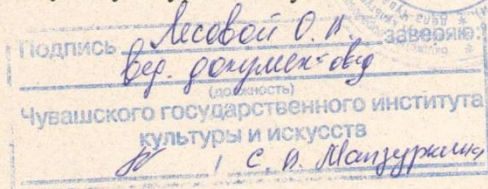 Подпись Лесовой О. В. заверяю:
вед. документовед
(должность)
Чувашского государственного института
культуры и искусств
/ С. В.